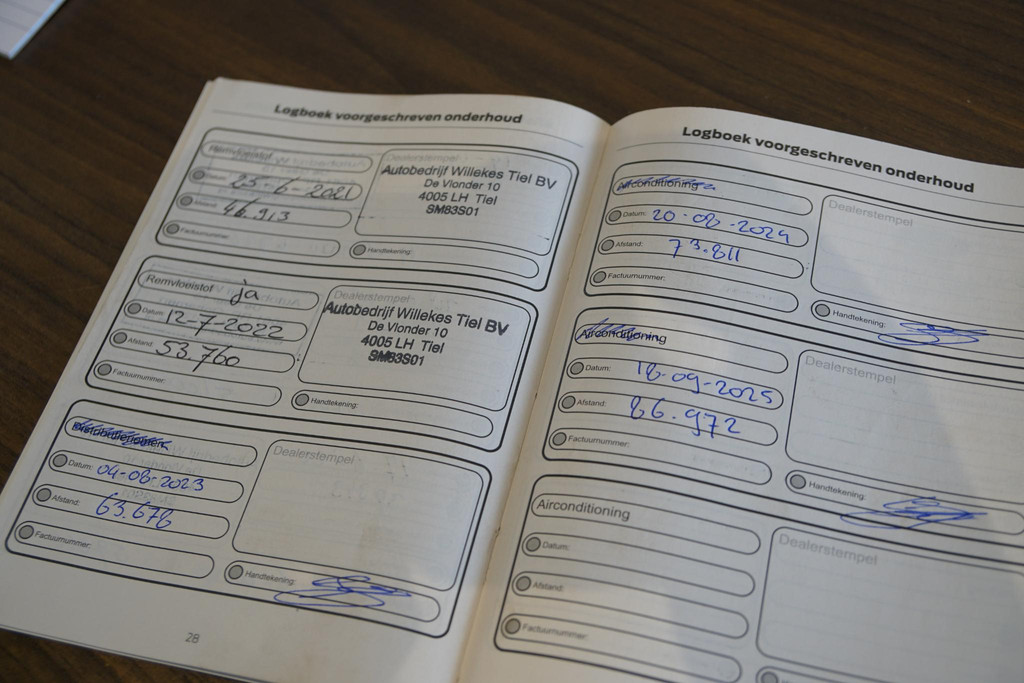 Logboek voorgeschreven onderhoud
Remvloeistof
Datum:
25-6-2021
Afstand:
46.913
Factuurnummer:
Dealerstempel
Autobedrijf Willekes Tiel BV
De Vlonder 10
4005 LH Tiel
SM83S01
Handtekening:
Remvloeistof ja
Datum: 12-7-2022
Afstand: 53.760
Factuurnummer:
Dealerstempel
Autobedrijf Willekes Tiel BV
De Vlonder 10
4005 LH Tiel
SM83S01
Handtekening:
Datum: 04-08-2023
Afstand: 63.678
Factuurnummer:
Dealerstempel
Handtekening:
28
Logboek voorgeschreven onderhoud
Airconditioning
Datum: 20-08-2024
Afstand: 73.811
Factuurnummer:
Dealerstempel
Handtekening:
Airconditioning
Datum: 18-09-2025
Afstand: 86.972
Factuurnummer:
Dealerstempel
Handtekening:
Airconditioning
Datum:
Afstand:
Factuurnummer:
Dealerstempel